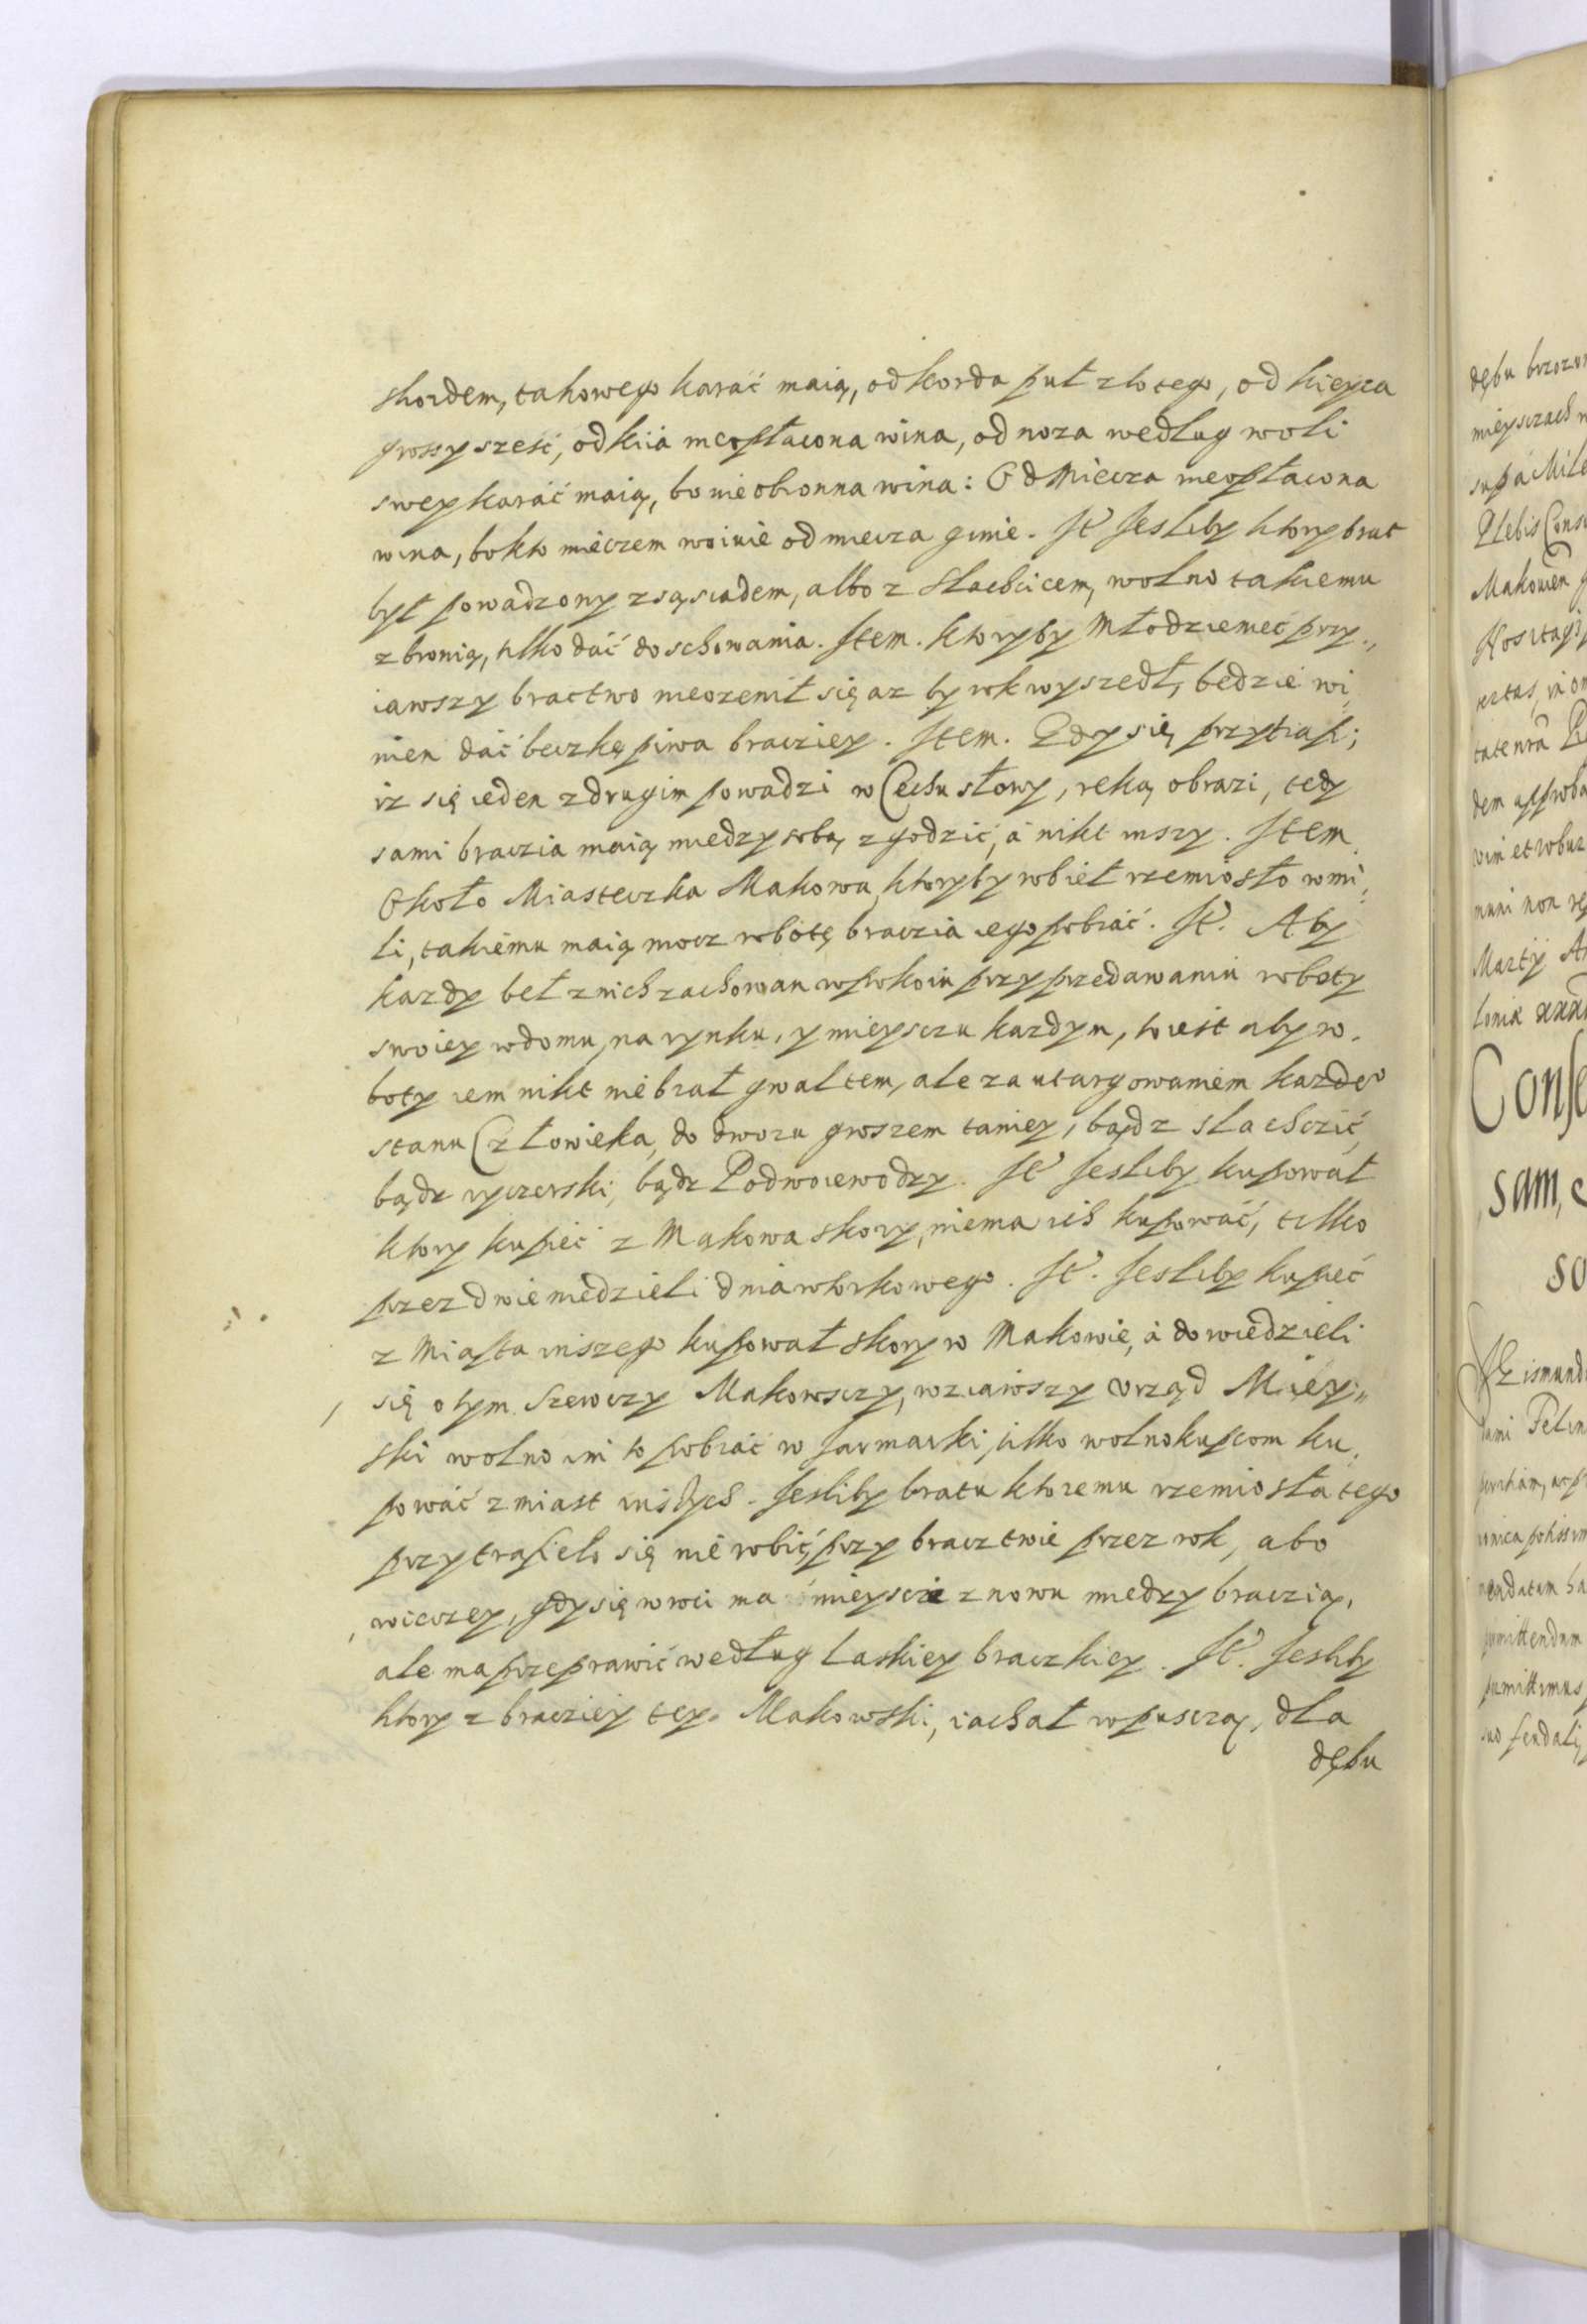 skordem, takowego karać maią, od korda puł złotego, od kieyca
groszy sześć, od kiia nieopłacona wina, od noza według woli
swey karać maią, bo nieobronna wina: Od Miecza nieopłacona
wina, bo kto mieczem woiuie od miecza ginie. It Jesliby ktory brat
był powadzony z sąsiadem, albo z Slachcicem, wolno takiemu
z bronią, tilko dać do schowania. Item. ktoryby Młodzieniec przy.,
iawszy bractwo nieozenił się az by rok wyszedł, będzie wi,
nien dać beczkę piwa bracziey. Item. Gdy się przytrafi;
iz się ieden z drugim powadzi w Cechu słowy, ręką obrazi, tedy
sami braczia maią miedzy sobą zgodzić, á nikt inszy. Item
Około Miasteczka Makowa, ktoryby robieł rzemiosło w mi,
li, takiemu maią mocz robotę braczia iego pobrać. It. Aby
kazdy beł z nich zachowan w pokoiu przy przedawaniu roboty
swoiey w domu, na rynku, y mieysczu kazdym, to iest aby ro,
boty iem nikt nie brał gwałtem, ale za utargowaniem kazdego
stanu Człowieka, do dworu groszem taniey, bądz slachczić,
bądz ryczerski, bądz Podwoiewodzy. It Jesliby kupował
ktory kupiec z Makowa skory, niema ich kupować, tilko
przez dwie niedzieli dnia wtorkowego. It. Jesliby kupiec
z Miasta inszego kupował skory w Makowie, á dowiedzieli
się o tym Szewczy Makowsczy, wziąwszy Urząd Miey,,
ski wolno im to pobrać w Jarmarki, tilko wolno kupcom ku,
pować z miast inszych. Jesliby bratu ktoremu rzemiosła tego
przytrafieło się nie robić, przy bracztwie przez rok, abo
wieczey, gdy się wroci ma mieyscze znowu miedzy braczią,
ale ma przeprawić według Laskiey braczkiey. It. Jesliby
ktory z bracziey tey. Makowski, iachał w pusczą, dla
dębu